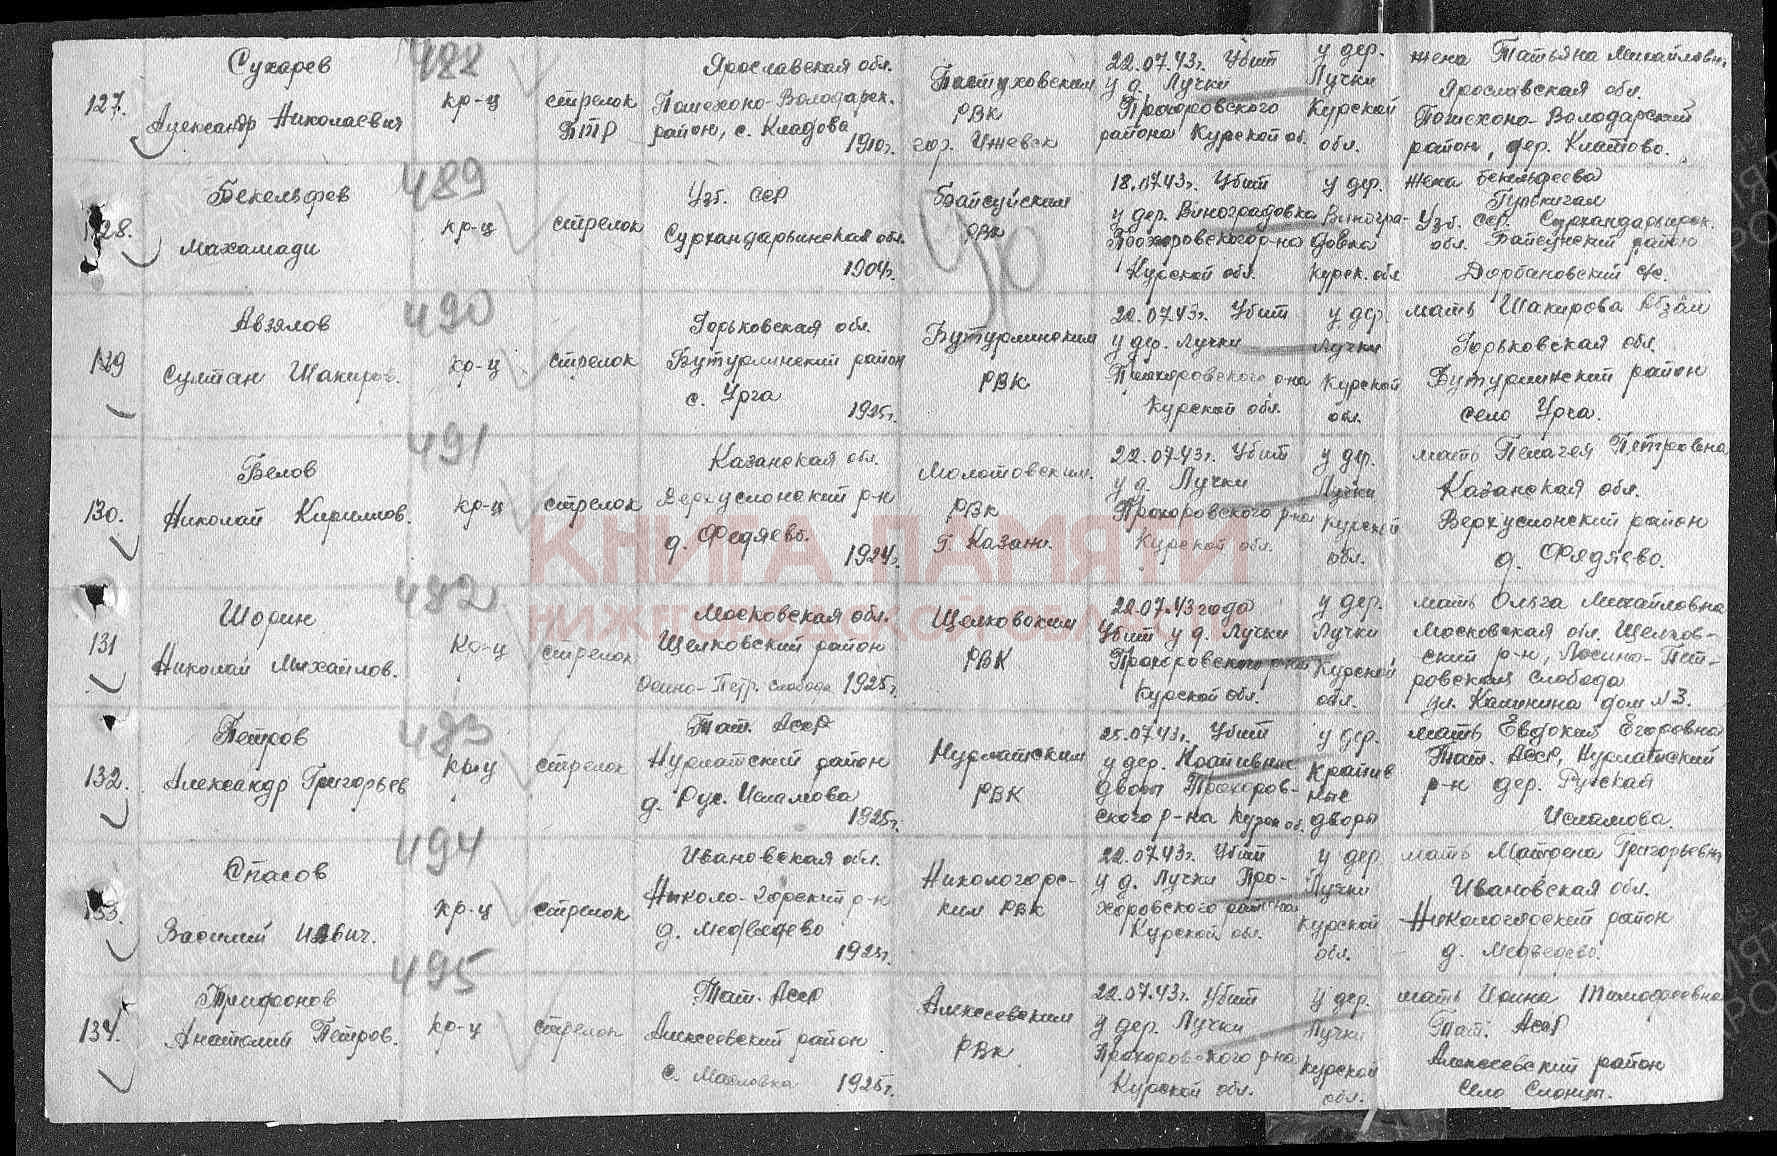 127.
Сухарев
Александр Николаевич
кр-ц
стрелок
БТР
Ярославская обл.
Пошехоно-Володарск.
район, с. Кладова
1910г.
Пастуховским
РВК
гор. Ижевск
22.07.43г. Убит
у д. Лучки
Прохоровского
района Курской об.
у дер.
Лучки
Курской
обл.
жена Татьяна Михайловн.
Ярославская обл.
Пошехоно-Володарский
район, дер. Клатово.
128.
Бекельфев
Махамади
489
кр-ц
стрелок
Узб. ССР
Сурхандарьинская обл.
1904г.
Байсуйским
РВК
18.07.43г. Убит
у дер. Виноградовка
Прохоровского р-на
Курской обл.
у дер.
Виногра-
довка
Курск. обл
жена
Узб. ССР. Сурхандарьинск.
обл. Байсунский район
Дорбановский с/с.
129
Авзялов
Султан Шакиров.
490
кр-ц
стрелок
Горьковская обл.
Бутурлинский район
с. Урга
1925г.
Бутурлинским
РВК
22.07.43г. Убит
у дер. Лучки
Прохоровского р-на
Курской обл.
у дер.
Лучки
Курской
обл.
мать Шакирова
Горьковская обл.
Бутурлинский район
село Урга.
130.
Белов
Николай Кириллов.
491
кр-ц
стрелок
Казанская обл.
Верхуслонский р-н
д. Федяево.
1924г.
Молотовским.
РВК
г. Казань.
22.07.43г. Убит
у д. Лучки
Прохоровского р-на
Курской обл.
у дер.
Лучки
Курской
обл.
мать Пелагея Петровна
Казанская обл.
Верхуслонский район
д. Фядяево.
131
Шорин
Николай Михайлов.
492
кр-ц
стрелок
Московская обл.
Щелковский район
Лосино-Петр. слобода 1925г.
Щелковским
РВК
22.07.43 года
Убит у д. Лучки
Прохоровского р-на
Курской обл.
у дер.
Лучки
Курской
обл.
мать Ольга Михайловна
Московская обл. Щелков-
ский р-н, Лосино-Пет-
ровская слобода
ул. Калинина дом №3.
132.
Петров
Александр Григорьев
493
кр-ц
стрелок
Тат. АССР
Нурлатский район
д. Рус. Исламова
1925г.
Нурлатским
РВК
25.07.43г. Убит
у дер. Крапивные
дворы Прохоров-
ского р-на Курск об.
у дер.
Крапив
ные
дворы
мать Евдокия Егоровна
Тат. АССР, Нурлатский
р-н дер. Русская
Исламова.
133.
Спасов
Василий Ивич.
494
кр-ц
стрелок
Ивановская обл.
Николо-горский р-н
д. Медведево
1925г.
Никологорс-
ким РВК
22.07.43г. Убит
у д. Лучки Про-
хоровского района
Курской обл.
у дер.
Лучки
Курской
обл.
мать Матрена Григорьевна
Ивановская обл.
Никологорский район
д. Медведево.
134.
Трифонов
Анатолий Петров.
495
кр-ц
стрелок
Тат. АССР
Алексеевский район
1925г.
Алексеевским
РВК
22.07.43г. Убит
у дер. Лучки
Прохоровского р-на
Курской обл.
у дер.
Лучки
Курской
обл.
мать Ирина Тимофеевна
Тат. АССР
Алексеевский район
село
КНИГА ПАМЯТИ
НИЖЕГОРОДСКОЙ ОБЛАСТИ